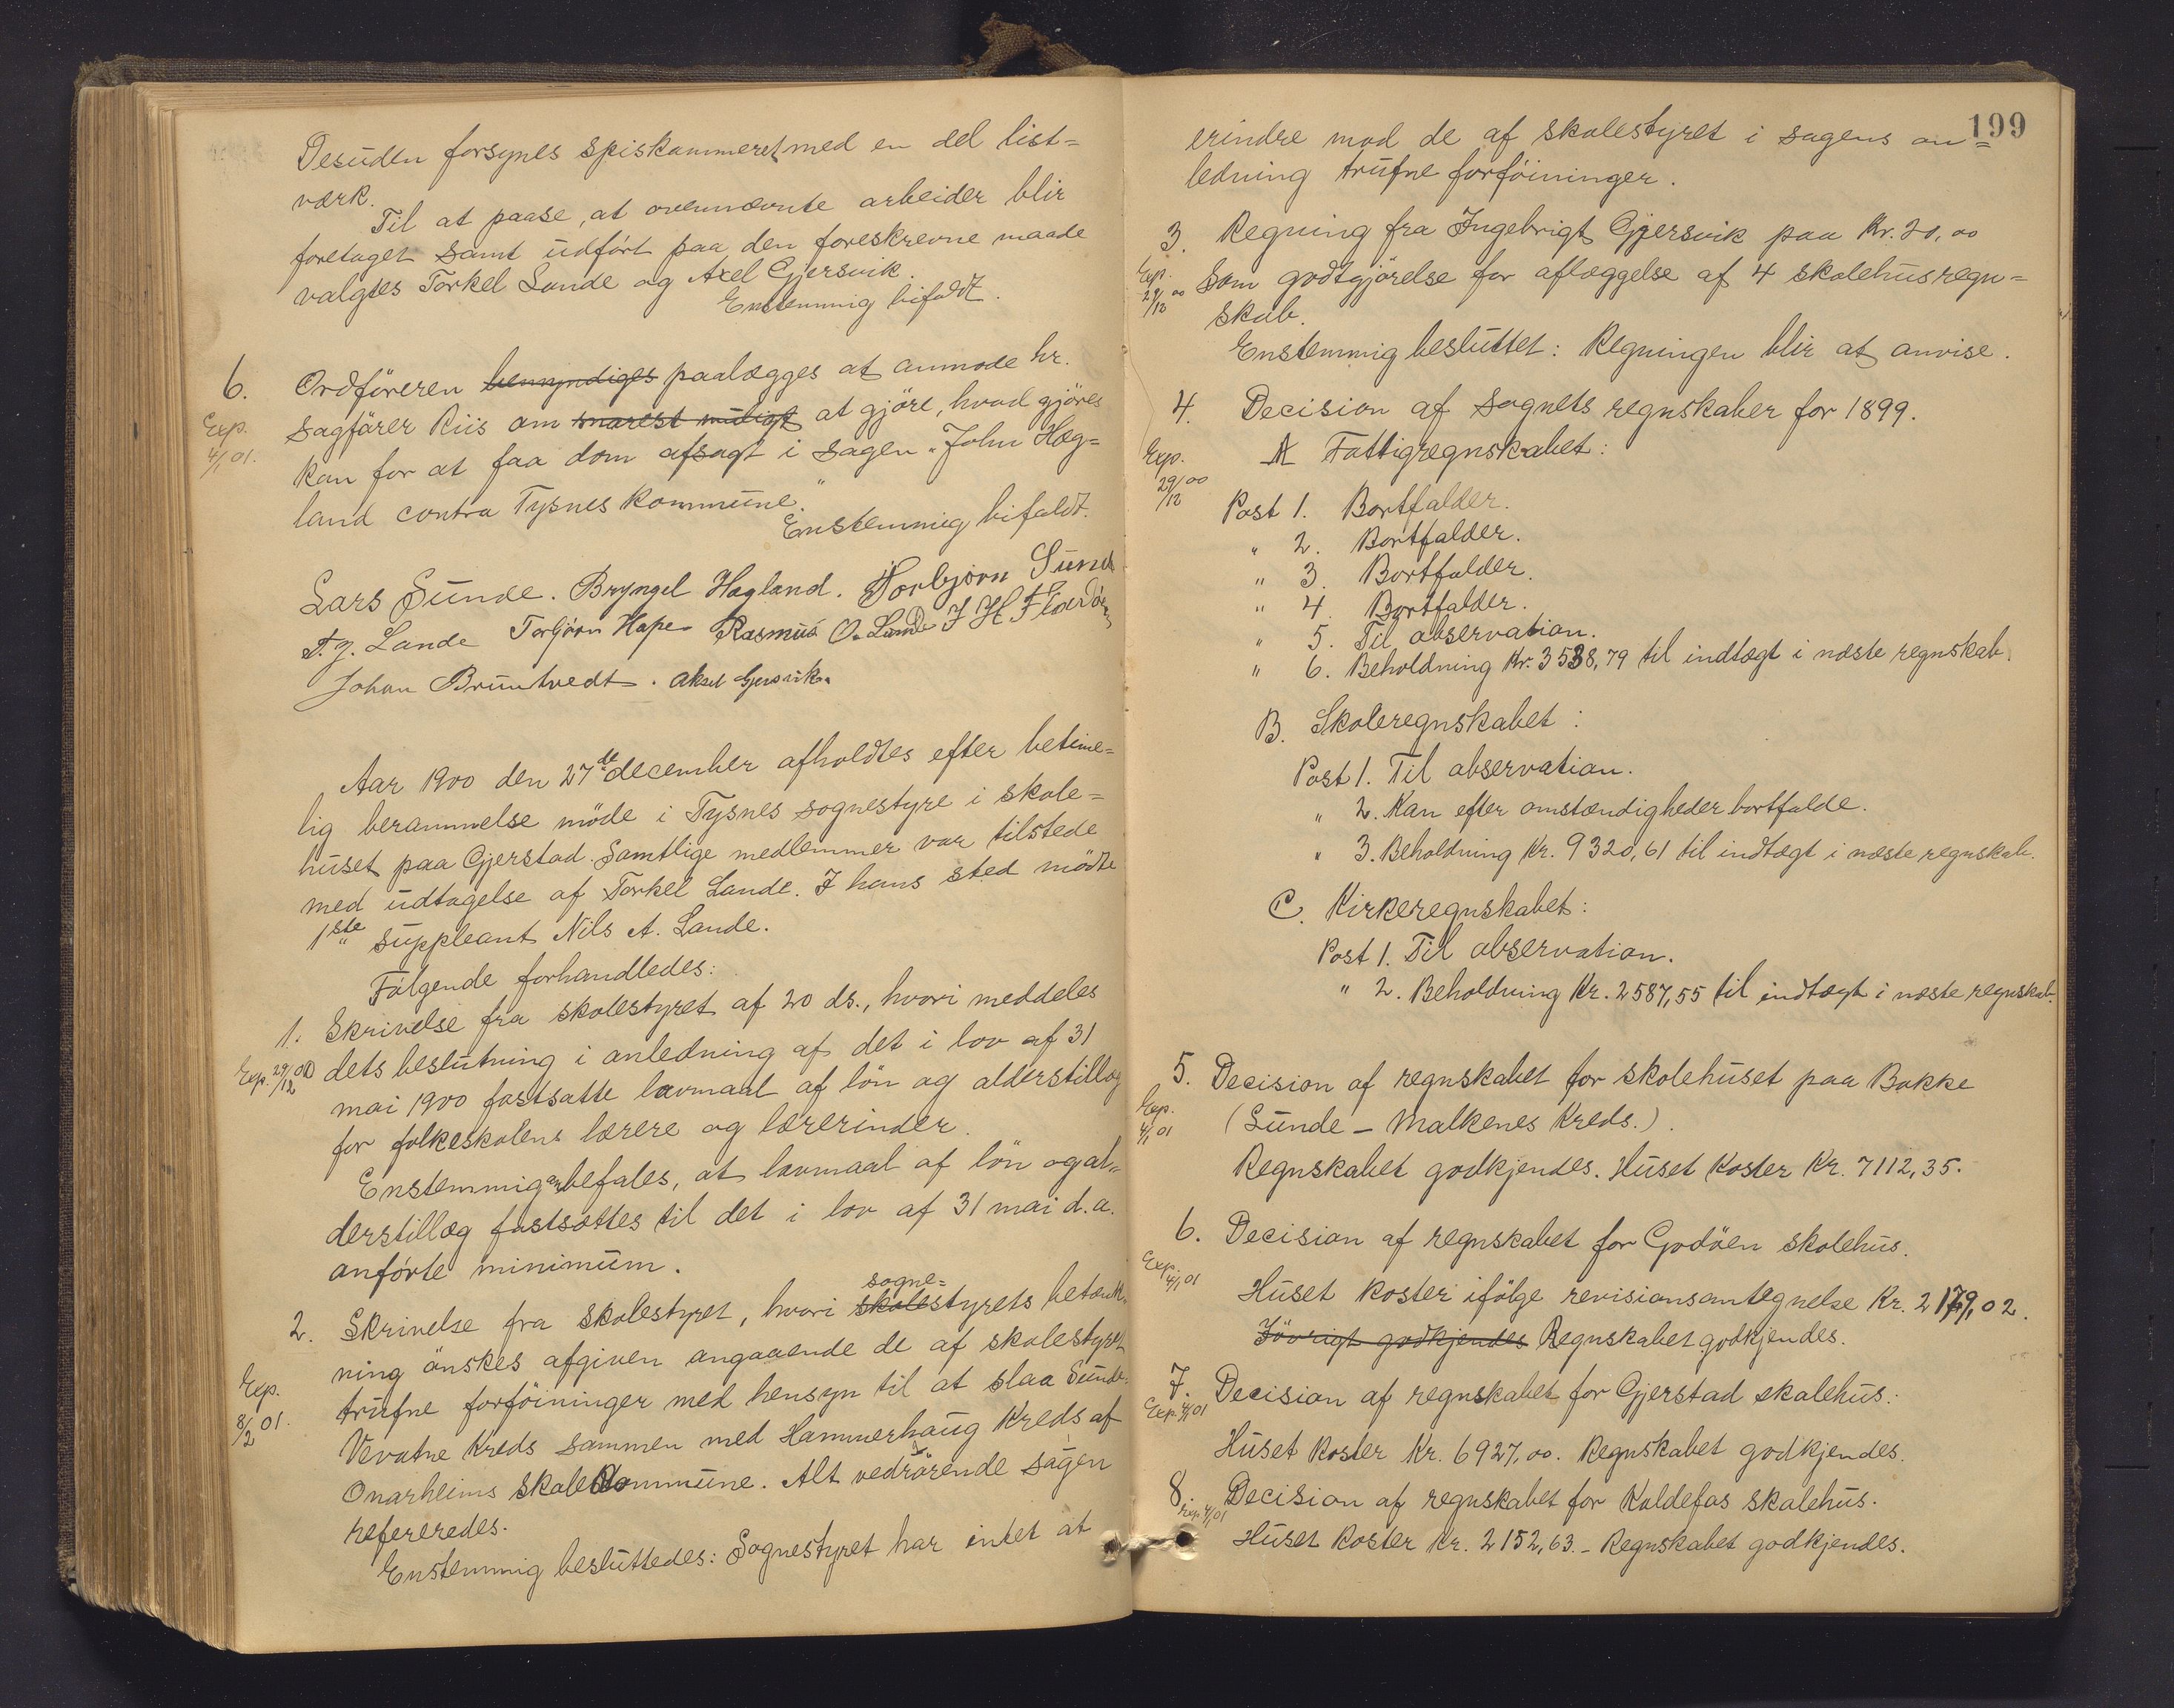 Desuden forsynes spiskammeret med en del list=
værk.
Til at paase, at ovennævnte arbeider blir
foretaget samt udført paa den foreskrevne maade
valgtes Torkel Lande og Axel Gjersvik.
Enstemmig bifaldt.
6. Ordføreren bemyndiges paalægges at anmode hr.
Exp. 4/1 01.
sagfører Riis om snarest muligt at gjöre, hvad gjöres
kan for at faa dom afsagt i sagen "John Hæg=
land contra Tysnes kommune."
Enstemmig bifaldt.
Lars Sunde. Bryngel Hagland. Torbjørn Sund
T. J. Lande Torbjørn Hope Rasmus O. Lunde J H Flordön
Johan Bruntvedt. Aksel Gjersvik.
Aar 1900 den 27de december afholdtes efter betime=
lig berammelse möde i Tysnes sognestyre i skole=
huset paa Gjerstad. Samtlige medlemmer var tilstede
med udtagelse af Torkel Lande. I hans sted mödte
1ste suppleant Nils A. Lande.
Fölgende forhandledes:
1. Skrivelse fra skolestyret af 20 ds., hvori meddeles
Exp. 29/12 00
dets beslutning i anledning af det i lov af 31
mai 1900 fastsatte lavmaal af lön og alderstillæg
for folkeskolens lærere og lærerinder.
Enstemmig anbefales, at lavmaal af lön og al=
derstillæg fastsættes til det i lov af 31 mai d.a.
anförte minimum.
sogne=
2. Skrivelse fra skolestyret, hvori skolestyrets betænk=
ning önskes afgiven angaaende de af skolestyret
Exp. 8/2 01.
trufne forföininger med hensyn til at slaa Sunde-
Vevatne kreds sammen med Hammerhaug kreds af
Onarheims skolekommune. Alt vedrörende sagen
refereredes.
Enstemmig besluttedes: Sognestyret har intet at
199
erindre mod de af skolestyret i sagens an=
ledning trufne forföininger.
3. Regning fra Ingebrigt Gjersvik paa Kr. 20,00
Exp. 29/12 00
som godtgjörelse for aflæggelse af 4 skolehusregn=
skab.
Enstemmig besluttet: Regningen blir at anvise.
4. Decision af sognets regnskaber for 1899.
Exp. 29/12 00
A Fattigregnskabet:
Post 1. Bortfalder.
" 2. Bortfalder.
" 3. Bortfalder.
" 4. Bortfalder.
" 5. Til observation.
" 6. Beholdning Kr. 3538,79 til indtægt i næste regnskab.
B. Skoleregnskabet:
Post 1. Til observation.
" 2. Kan efter omstændigheder bortfalde.
" 3. Beholdning Kr. 9320,61 til indtægt i næste regnskab.
C. Kirkeregnskabet:
Post 1. Til observation.
" 2. Beholdning Kr. 2587,55 til indtægt i næste regnskab.
5. Decision af regnskabet for skolehuset paa Bakke
Exp. 4/1 01
(Sunde - Malkenes Kreds.).
Regnskabet godkjendes. Huset koster Kr. 7112,35.
6. Decision af regnskabet for Godöen skolehus.
Exp. 4/1 01
Huset koster ifölge revisionsantegnelse Kr. 2179,02.
Iövrigt godkjendes Regnskabet godkjendes.
7. Decision af regnskabet for Gjerstad skolehus.
Exp. 4/1 01
Huset koster Kr. 6927,00. Regnskabet godkjendes.
8. Decision af regnskabet for Kaldefos skolehus.
Exp. 4/1 01
Huset koster Kr. 2152,63. - Regnskabet godkjendes.